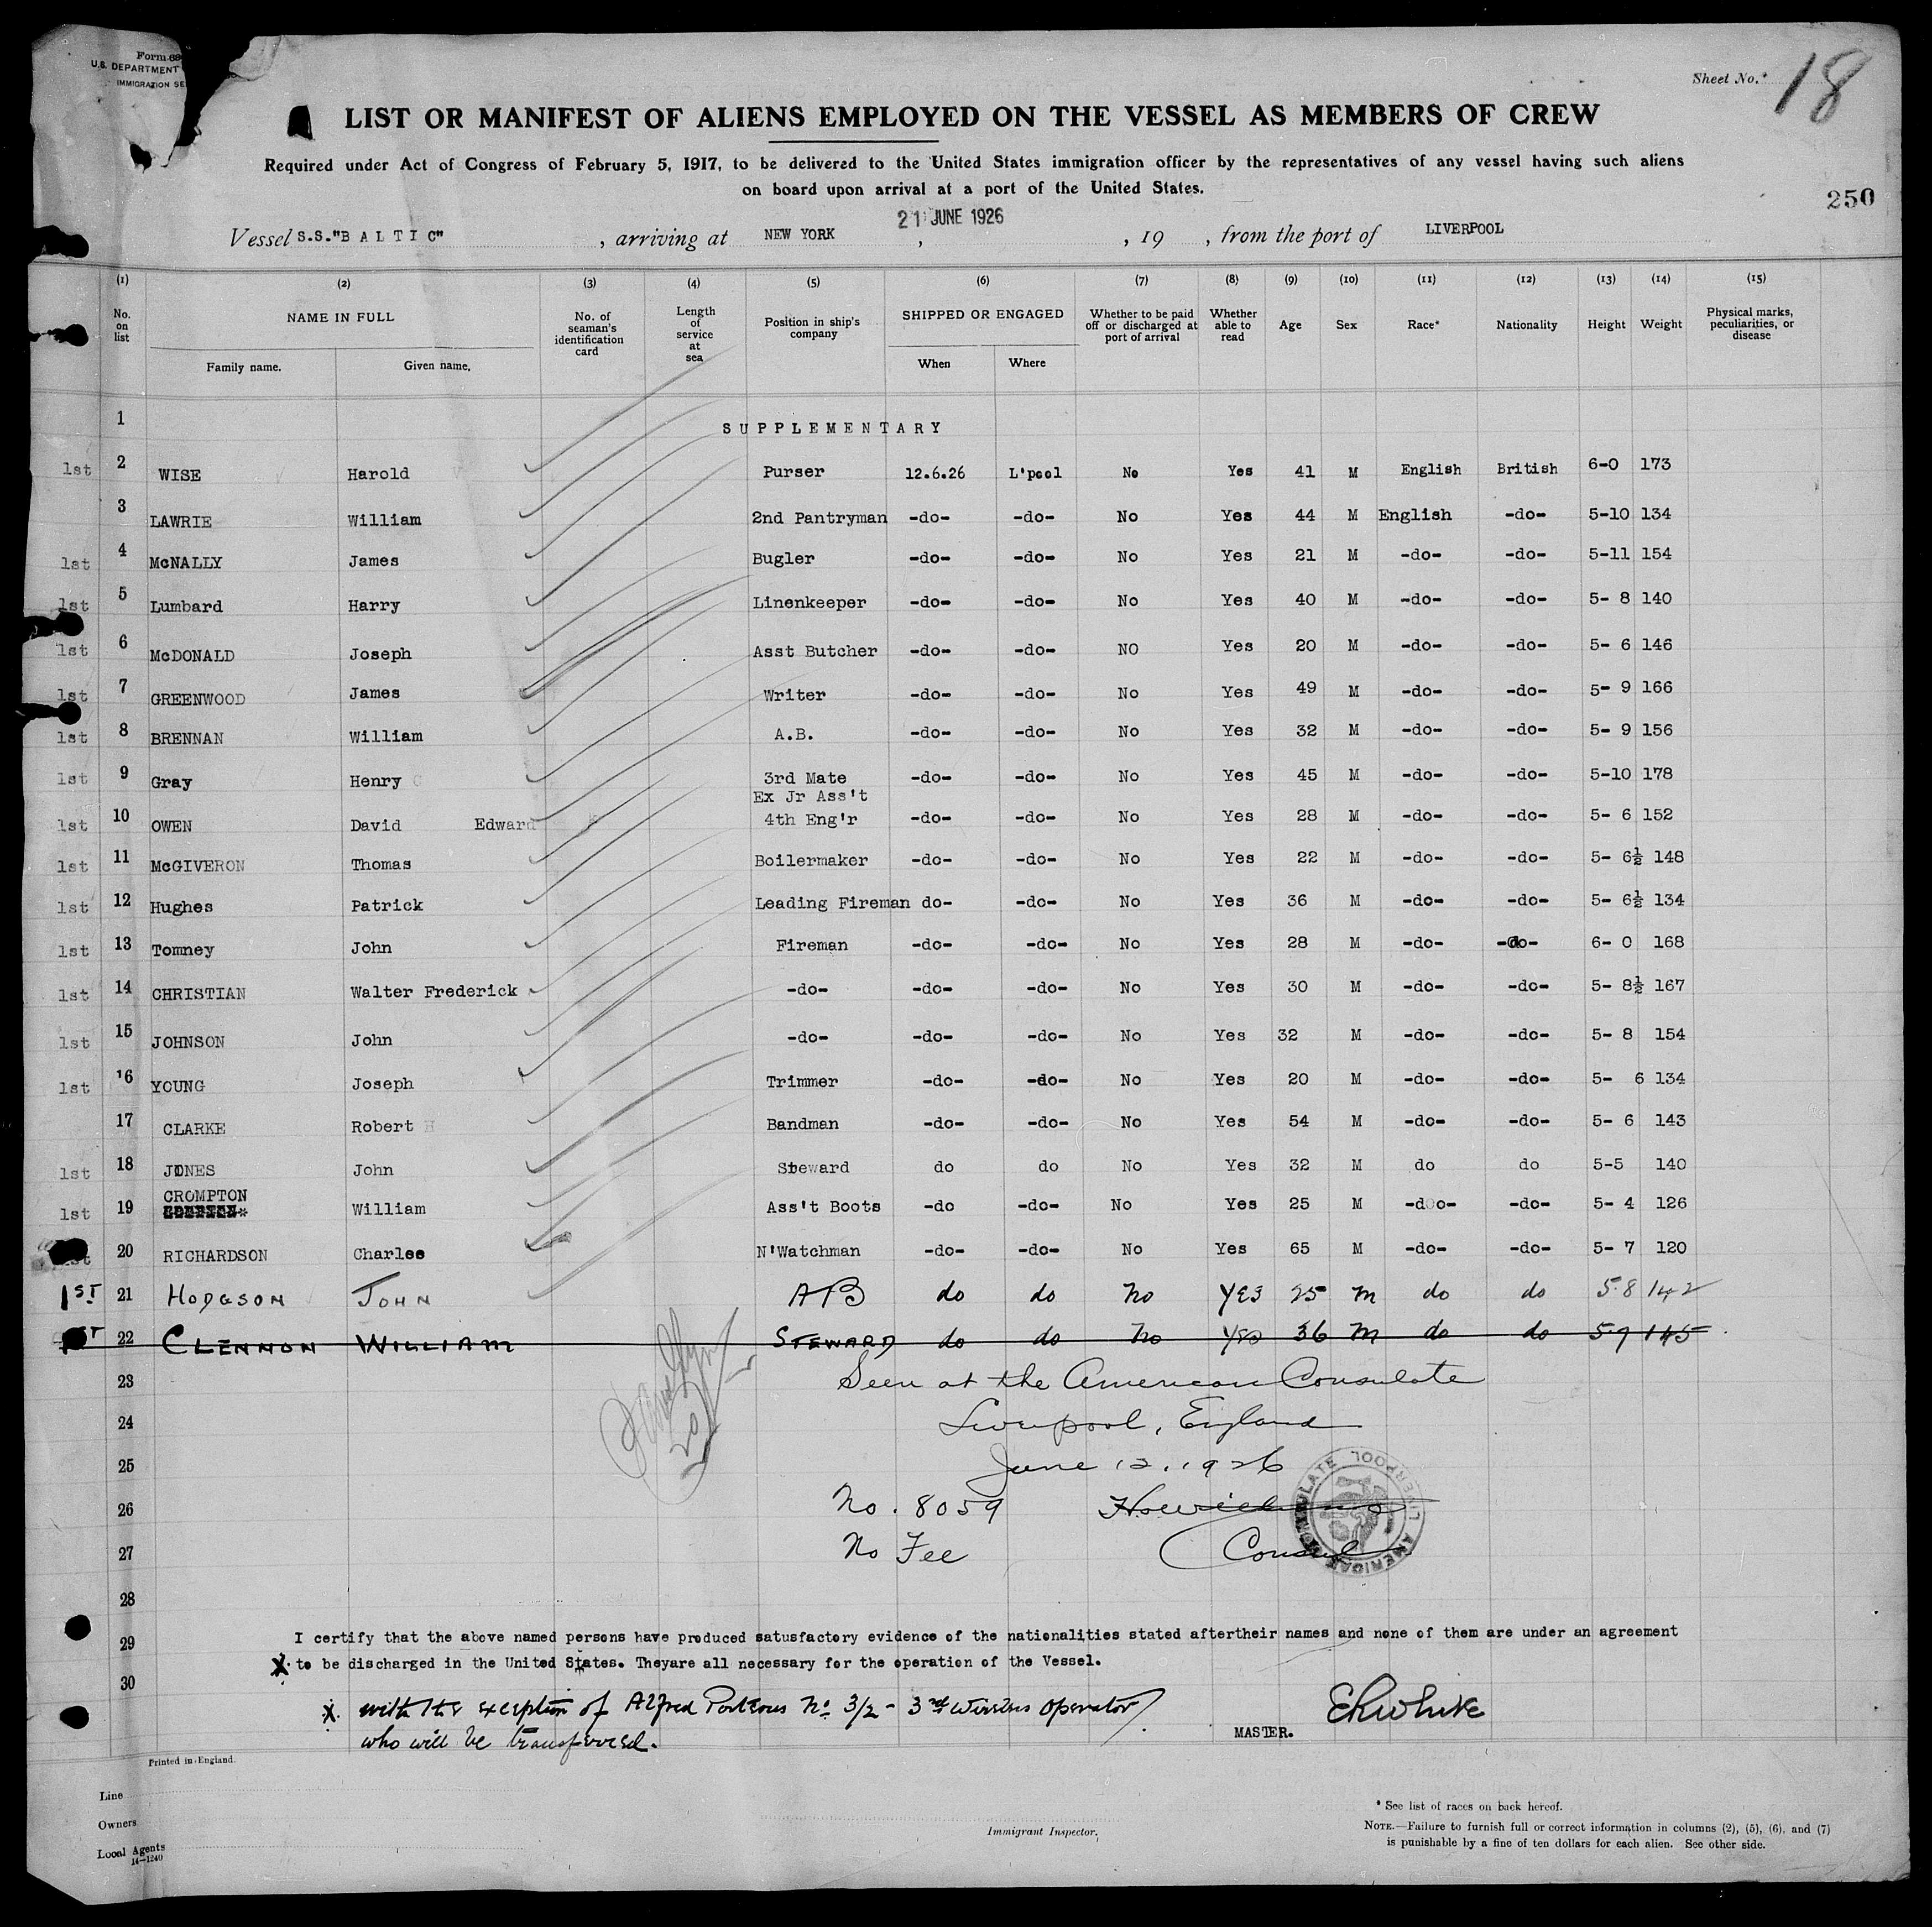 Form 69
U.S. DEPARTMENT
IMMIGRATION SE
Sheet No.* 18
LIST OR MANIFEST OF ALIENS EMPLOYED ON THE VESSEL AS MEMBERS OF CREW
Required under Act of Congress of February 5, 1917, to be delivered to the United States immigration officer by the representatives of any vessel having such aliens
on board upon arrival at a port of the United States.
250
Vessel S.S."BALTIC", arriving at NEW YORK, 21 JUNE 1926, 19 , from the port of LIVERPOOL
(1) (2) (3) (4) (5) (6) (7) (8) (9) (10) (11) (12) (13) (14) (15)
No. on list NAME IN FULL Family name. Given name. No. of seaman's identification card Length of service at sea Position in ship's company SHIPPED OR ENGAGED When Where Whether to be paid off or discharged at port of arrival Whether able to read Age Sex Race* Nationality Height Weight Physical marks, peculiarities, or disease
1 SUPPLEMENTARY
1st 2 WISE Harold Purser 12.6.26 L'pool No Yes 41 M English British 6-0 173
3 LAWRIE William 2nd Pantryman -do- -do- No Yes 44 M English -do- 5-10 134
1st 4 McNALLY James Bugler -do- -do- No Yes 21 M -do- -do- 5-11 154
1st 5 Lumbard Harry Linenkeeper -do- -do- No Yes 40 M -do- -do- 5- 8 140
1st 6 McDONALD Joseph Asst Butcher -do- -do- NO Yes 20 M -do- -do- 5- 6 146
1st 7 GREENWOOD James Writer -do- -do- No Yes 49 M -do- -do- 5- 9 166
1st 8 BRENNAN William A.B. -do- -do- No Yes 32 M -do- -do- 5- 9 156
1st 9 Gray Henry C 3rd Mate -do- -do- No Yes 45 M -do- -do- 5-10 178
Ex Jr Ass't
1st 10 OWEN David Edward 4th Eng'r -do- -do- No Yes 28 M -do- -do- 5- 6 152
1st 11 McGIVERON Thomas Boilermaker -do- -do- No Yes 22 M -do- -do- 5- 6½ 148
1st 12 Hughes Patrick Leading Fireman do- -do- No Yes 36 M -do- -do- 5- 6½ 134
1st 13 Tomney John Fireman -do- -do- No Yes 28 M -do- -do- 6- 0 168
1st 14 CHRISTIAN Walter Frederick -do- -do- -do- No Yes 30 M -do- -do- 5- 8½ 167
1st 15 JOHNSON John -do- -do- -do- No Yes 32 M -do- -do- 5- 8 154
1st 16 YOUNG Joseph Trimmer -do- -do- No Yes 20 M -do- -do- 5- 6 134
17 CLARKE Robert H Bandman -do- -do- No Yes 54 M -do- -do- 5- 6 143
1st 18 JONES John Steward do do No Yes 32 M do do 5-5 140
CROMPTON
1st 19 William Ass't Boots -do -do- No Yes 25 M -do- -do- 5- 4 126
1st 20 RICHARDSON Charles N'Watchman -do- -do- No Yes 65 M -do- -do- 5- 7 120
1ST 21 HODGSON JOHN AB do do no YES 25 m do do 5.8 142
22 CLENNON WILLIAM STEWARD do do no Yes 36 m do do 5.7 145
23 Seen at the American Consulate
24 Liverpool, England
25 June 12, 1926
26 No. 8059
27 No Fee Consul
AMERICAN CONSULATE LIVERPOOL
28
29 I certify that the above named persons have produced satusfactory evidence of the nationalities stated aftertheir names and none of them are under an agreement
X to be discharged in the United States. Theyare all necessary for the operation of the Vessel.
30
X with the exception of Alfred Porteous No 3/2 - 3rd Wireless Operator
who will be transferred.
MASTER. ERWhite
Printed in England.
Line
Owners
Local Agents
14-1240
Immigrant Inspector.
* See list of races on back hereof.
NOTE.—Failure to furnish full or correct information in columns (2), (5), (6), and (7)
is punishable by a fine of ten dollars for each alien. See other side.